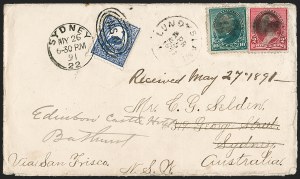 SYDNEY
MY 26
6-30 PM
91
22
Received May 27 1891
Mrs. C. G. Selden
Edinboro Castle Hotel
George Street
Bathurst
Sydney
Via San Frisco
N.S.W.
Australia